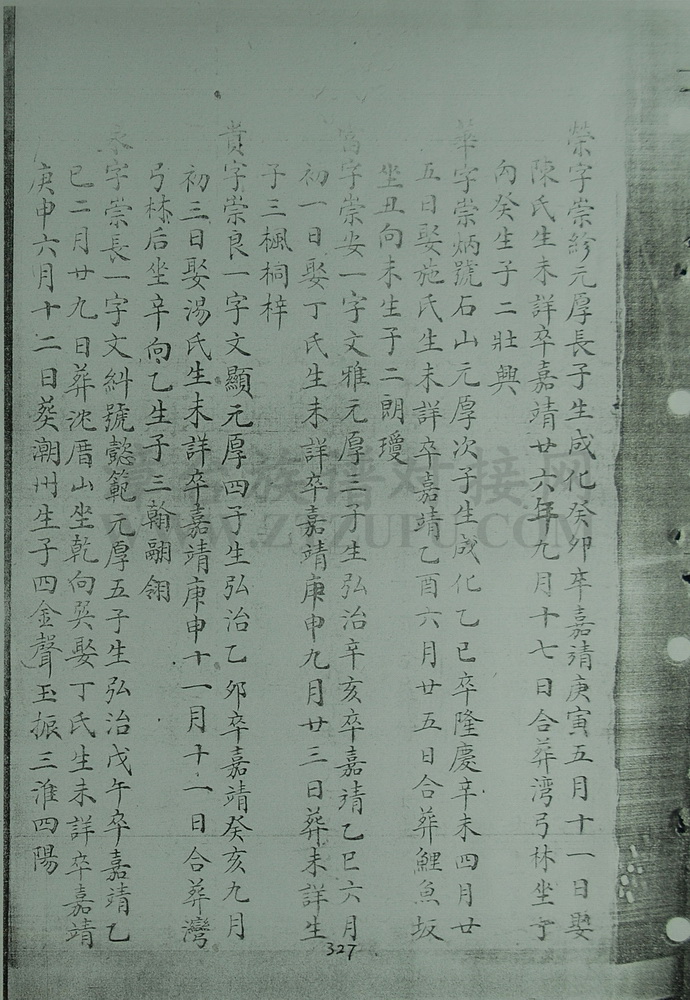 榮字崇紾元厚長子生成化癸卯卒嘉靖庚寅五月十一日娶
陳氏生未詳卒嘉靖廿六年九月十七日合葬湾弓林坐丁
向癸生子二壯興
華字崇炳號石山元厚次子生成化乙巳卒隆慶辛未四月廿
五日娶施氏生未詳卒嘉靖乙酉六月廿五日合葬鯉魚坂
坐丑向未生子二朗瓊
字崇安一字文雅元厚三子生弘治辛亥卒嘉靖乙巳六月
初一日娶丁氏生未詳卒嘉靖庚申九月廿三日葬未詳生
子三楓桐梓
貴字崇良一字文顯元厚四子生弘治乙卯卒嘉靖癸亥九月
初三日娶湯氏生未詳卒嘉靖庚申十一月十一日合葬灣
弓林后坐辛向乙生子三翰翮翎
字崇長一字文糾號懿範元厚五子生弘治戊午卒嘉靖乙
巳二月廿九日葬沈厝山坐乾向巽娶丁氏生未詳卒嘉靖
庚申六月十二日葵潮州生子四金聲玉振三淮四陽
327
WWW.ZJZUPU.COM